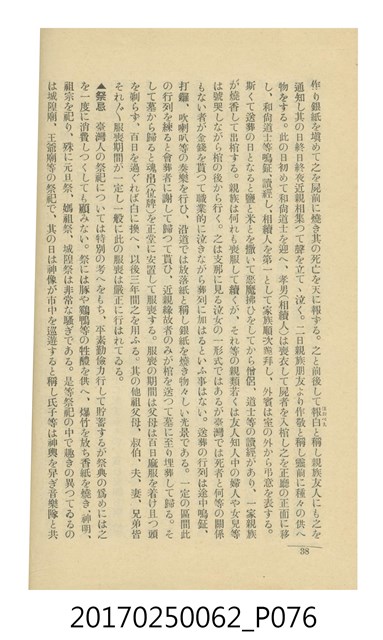 作り銀紙を塡めて之を屍前に燒き其の死亡を天に報する。之と前後して報白と稱し親族友人にも之を
通知し其の日終日終夜近親相集つて聲を立て、泣く。二日親族朋友より作敬と稱し靈前に種々の供へ
物をする。此の日初めて和尚道士を迎へ、孝男(相續人)は喪衣して屍者を入棺し之を正廳の正面に移
し、和尚道士等鳴鉦、讀經し、相續人を第一として家族順次燒拜し、外賓は室の外から弔意を表する。
斯くて送葬の日となると鹽と米とを撒いて惡魔拂ひをしてから僧侶、道士等の讀經があり、一家親族
が燒香して出棺する。親族は何れも喪服して續くが、それ等の親類若くは友人知人中の婦人や女兒等
は號哭しながら棺の後から行く。之は支那に見る泣女の一形式ではあるが臺灣では死者と何等の關係
もない者が金錢を貰つて職業的に泣きながら葬列に加はるといふ事はない。送葬の行列は途中鳴鉦、
打鑼、吹喇叭等の奏樂を行ひ、沿道では放落紙と稱し銀紙を燒き物々しい光景である。一定の區間此
の行列を練ると會葬者に謝して歸つて貰ひ、近親緣故者のみが棺を送つて墓に至り埋葬して歸る。そ
して墓から歸ると魂帛(位牌)を正堂に安置して服喪する。服喪の期間は父母は百日麻服を着け且つ頭
を剃らず、百日を過ぐれば白に換へ、以後三年間之を用ふる。其の他祖父母、叔伯、夫、妻、兄弟皆
それ〴〵服喪期間が一定し一般に此の服喪は嚴正に行はれてゐる。
▲祭忌　臺灣人の祭祀については特別の考へをもち、平素勤儉力行して貯蓄するが祭典の爲めには之
を一度に消費しつくしても顧みない。祭には豚や鷄鴨等の牲醴を供へ、爆竹を放ち香紙を燒き、神明、
祖宗を祀り、殊に元旦祭、媽祖祭、城隍祭は非常な騷ぎである。是等祭祀の中で趣きの異つてゐるの
は城隍廟、王爺廟等の祭祀で、其の日は神像が市中を巡遊すると稱し氏子等は神輿を舁ぎ音樂隊と共
38
20170250062_P076